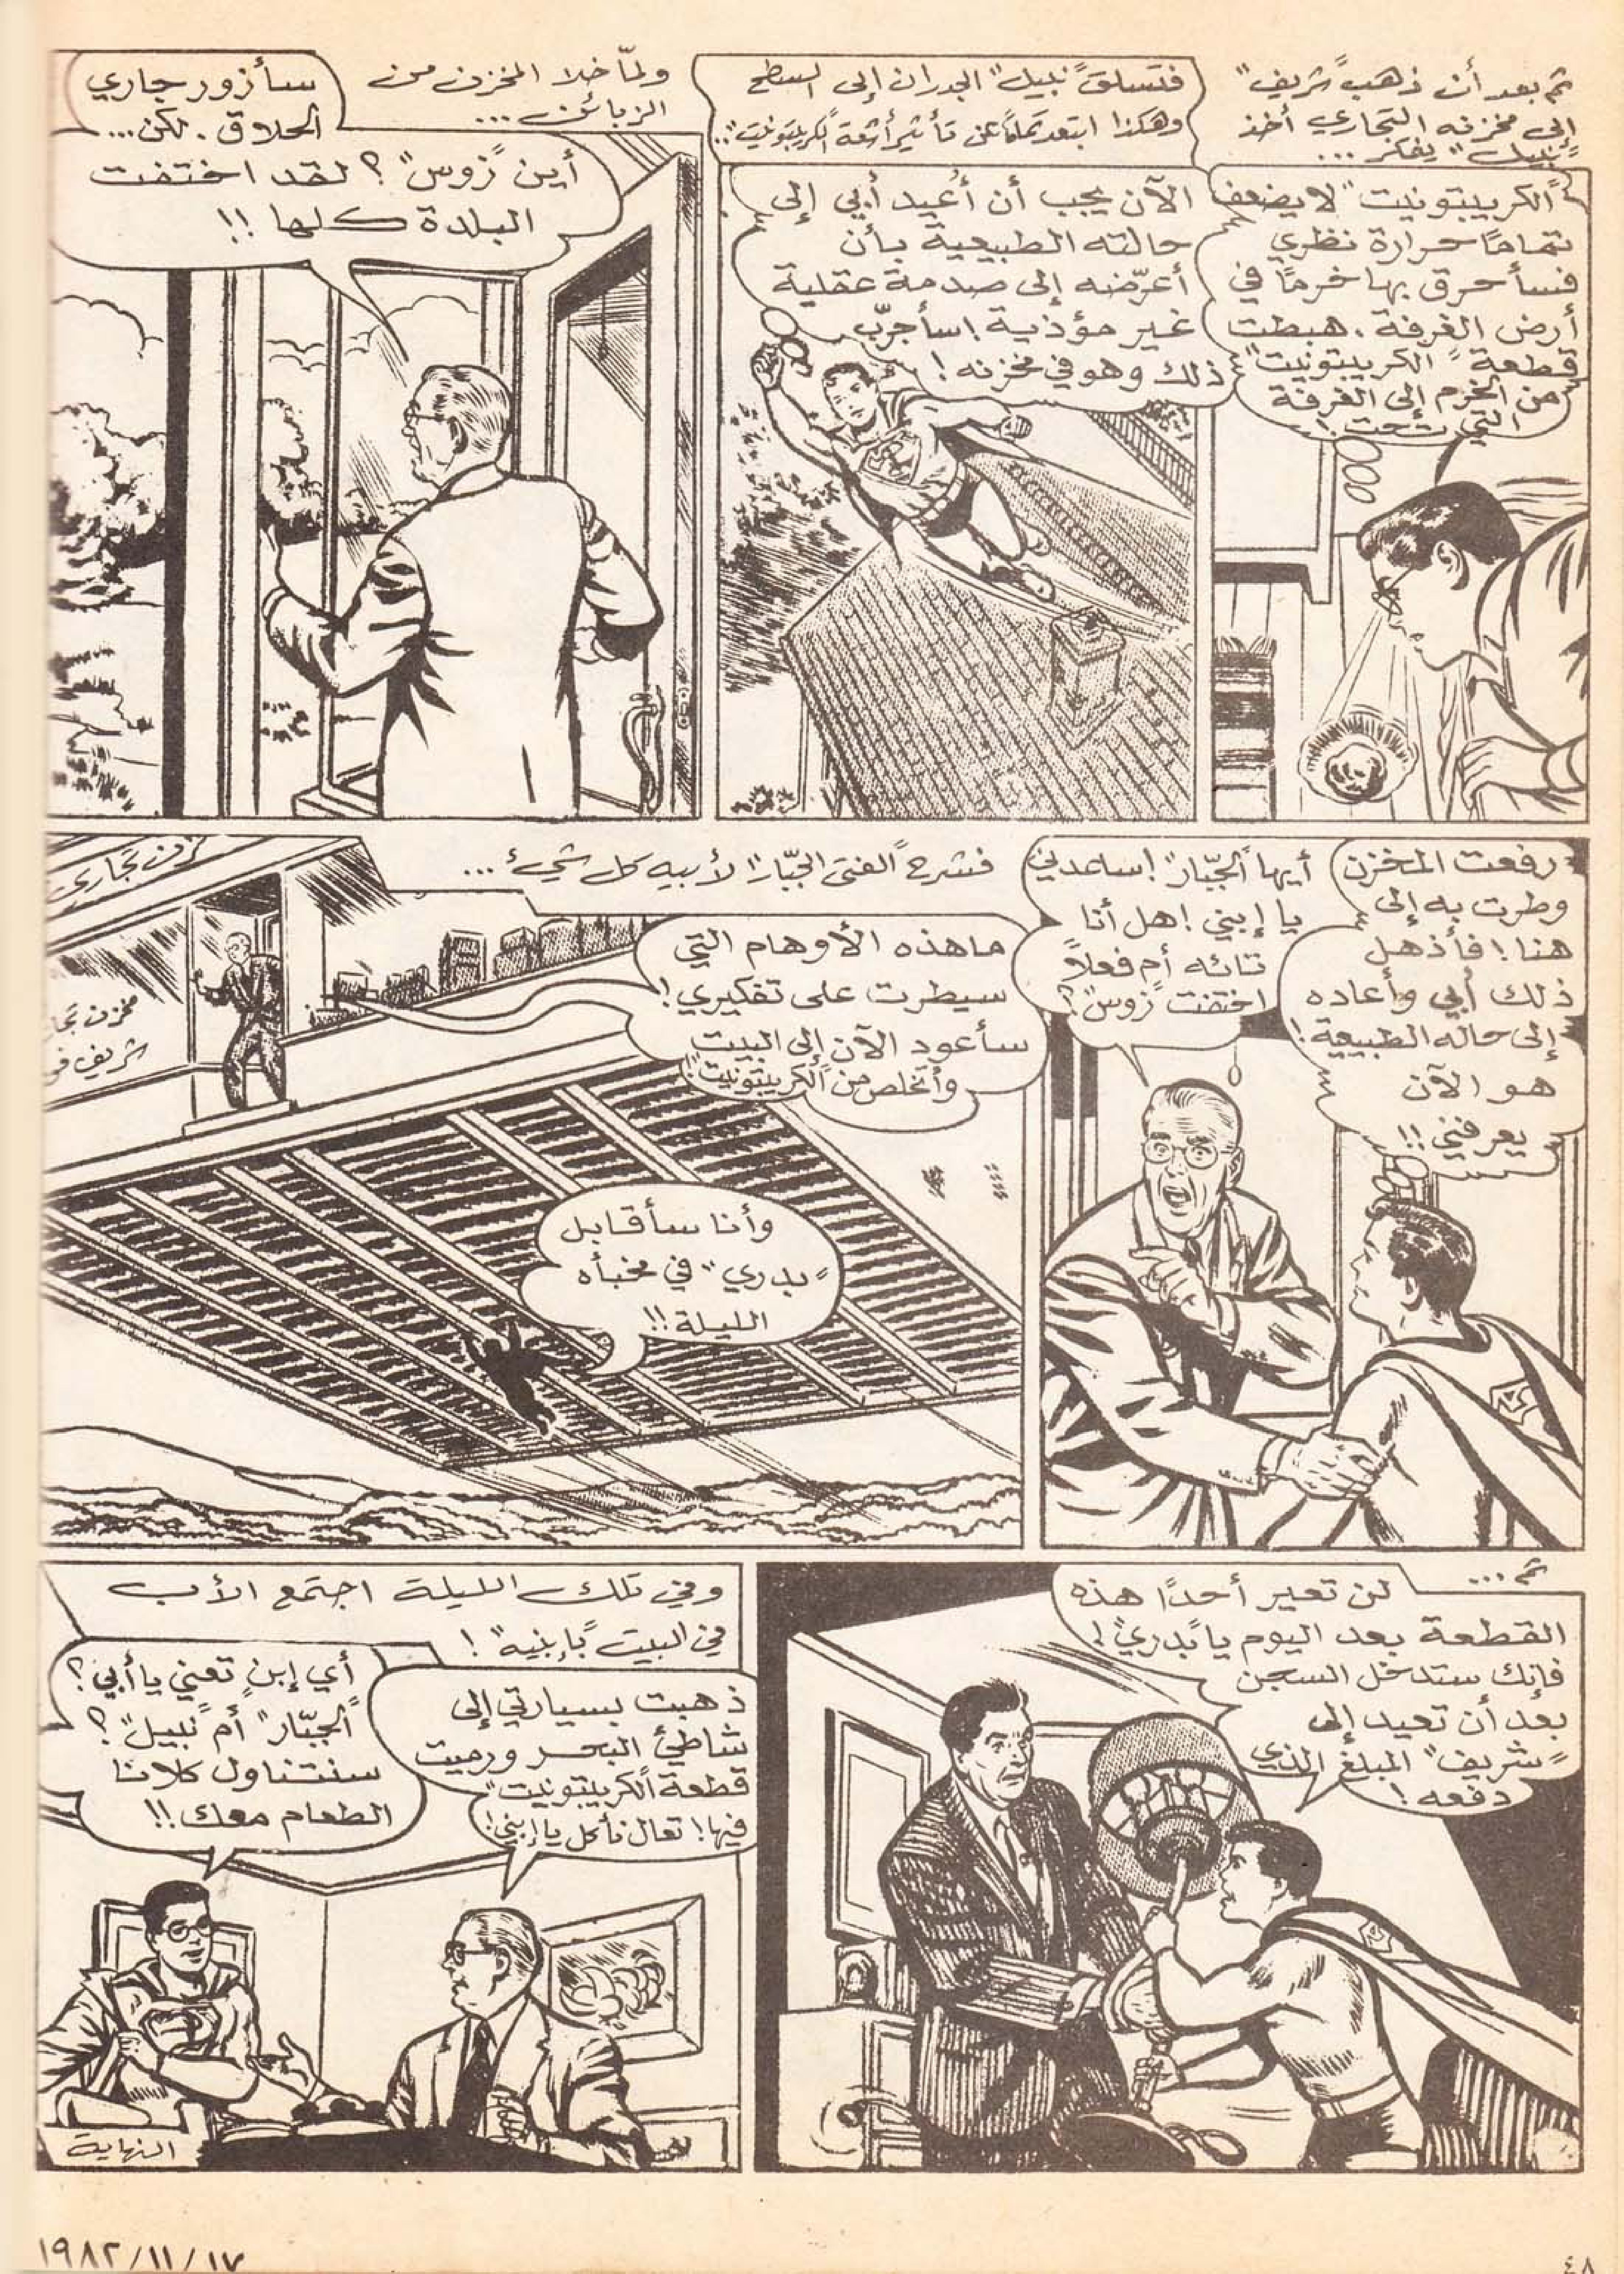 ثم بعد أن ذهب "شريف"
إلى مخزنه التجاري أخذ
"نبيل" يفكر...
"الكريبتونيت" لا يضعف
تمامًا حرارة نظري
فسأحرق بها خرمًا في
أرض الغرفة. هبطت
قطعة "الكريبتونيت"
من الخرم إلى الغرفة
التي تحت!
فتسلق "نبيل" الجدران إلى السطح
وهكذا ابتعد تمامًا عن تأثير أشعة "الكريبتونيت"...
الآن يجب أن أعيد أبي إلى
حالته الطبيعية بأن
أعرّضه إلى صدمة عقلية
غير مؤذية! سأجرّب
ذلك وهو في مخزنه!
ولمّا خلا المخزن من
الزبائن...
سأزور جاري
الحلاق. لكن...
أين "زوس"؟ لقد اختفت
البلدة كلها!!
رفعت المخزن
وطرت به إلى
هنا! فأذهل
ذلك أبي وأعاده
إلى حاله الطبيعية!
هو الآن
يعرفني!!
أيها "الجبّار"! ساعدني
يا إبني! هل أنا
تائه أم فعلاً
اختفت "زوس"؟
فشرح "الفتى الجبّار" لأبيه كل شيء...
ما هذه الأوهام التي
سيطرت على تفكيري!
سأعود الآن إلى البيت
وأتخلص من "الكريبتونيت"!
وأنا سأقابل
"بدري" في مخبأه
الليلة!!
مخزن تجاري
مخزن تجا
شريف فو
ثم...
لن تعير أحدًا هذه
القطعة بعد اليوم يا "بدري"!
فإنك ستدخل السجن
بعد أن تعيد إلى
"شريف" المبلغ الذي
دفعه!
وفي تلك الليلة اجتمع الأب
في البيت "بإبنيه"!
ذهبت بسيارتي إلى
شاطئ البحر ورميت
قطعة "الكريبتونيت"
فيها! تعال نأكل يا إبني!
أي إبنٍ تعني يا أبي؟
"الجبّار" أم "نبيل"؟
سنتناول كلانا
الطعام معك!!
النهاية
١٩٨٢/١١/١٧
٤٨